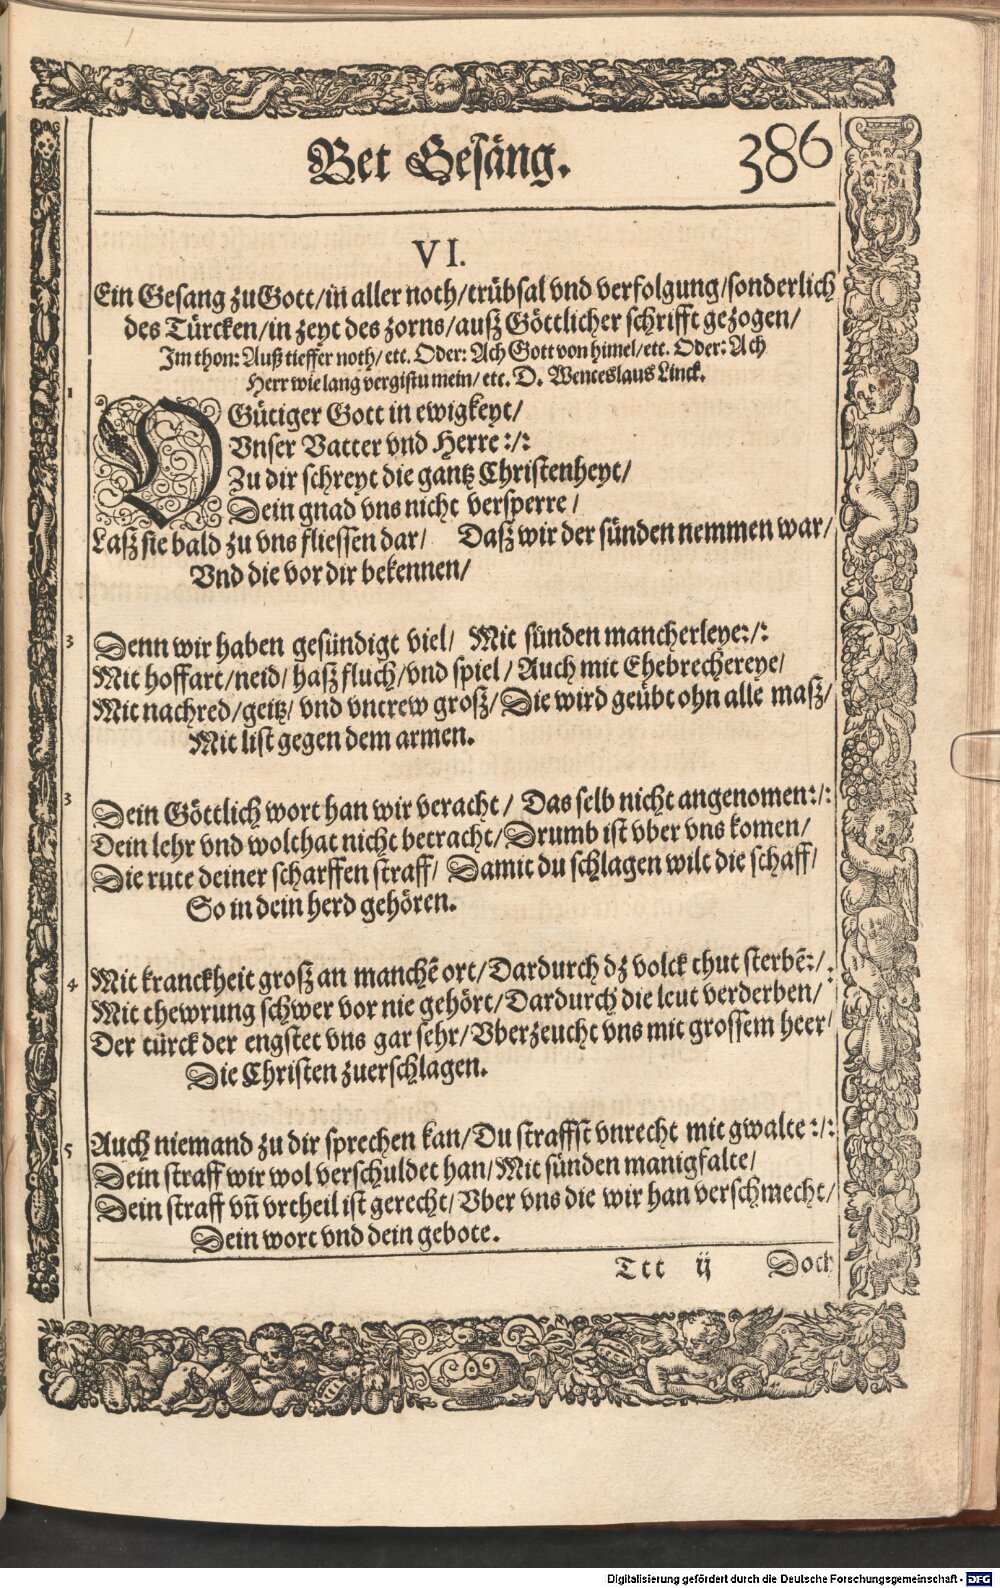 Bet Gesäng. 386
VI.
Ein Gesang zu Gott/in aller noth/trübsal vnd verfolgung/sonderlich
des Türcken/in zeyt des zorns/auß Göttlicher schrifft gezogen/
Im thon: Auß tieffer noth/ etc. Oder: Ach Gott von himel/etc. Oder: Ach
Herr wie lang vergistu mein/ etc. D. Wenceslaus Linck.
1 O Gütiger Gott in ewigkeyt/
Vnser Vatter vnd Herre :/:
Zu dir schreyt die gantz Christenheyt/
Dein gnad vns nicht versperre /
Laß sie bald zu vns fliessen dar/ Daß wir der sünden nemmen war/
Vnd die vor dir bekennen/
3 Denn wir haben gesündigt viel/ Mit sünden mancherleye:/:
Mit hoffart/neid/ haß fluch/vnd spiel/ Auch mit Ehebrechereye/
Mit nachred/geitz/ vnd vntrew groß/ Die wird geübt ohn alle maß/
Mit list gegen dem armen.
3 Dein Göttlich wort han wir veracht/ Das selb nicht angenomen:/:
Dein lehr vnd wolthat nicht betracht/ Drumb ist vber vns komen/
Die rute deiner scharffen straff/ Damit du schlagen wilt die schaff/
So in dein herd gehören.
4 Mit kranckheit groß an manchẽ ort/ Dardurch dz volck thut sterbẽ:/:
Mit thewrung schwer vor nie gehört/ Dardurch die leut verderben/
Der türck der engstet vns gar sehr/ Vberzeucht vns mit grossem heer/
Die Christen zuerschlagen.
5 Auch niemand zu dir sprechen kan/ Du straffst vnrecht mit gwalte:/:
Dein straff wir wol verschuldet han/ Mit sünden manigfalte/
Dein straff vñ vrtheil ist gerecht/ Vber vns die wir han verschmecht/
Dein wort vnd dein gebote.
Ttt ij Doch
Digitalisierung gefördert durch die Deutsche Forschungsgemeinschaft - DFG